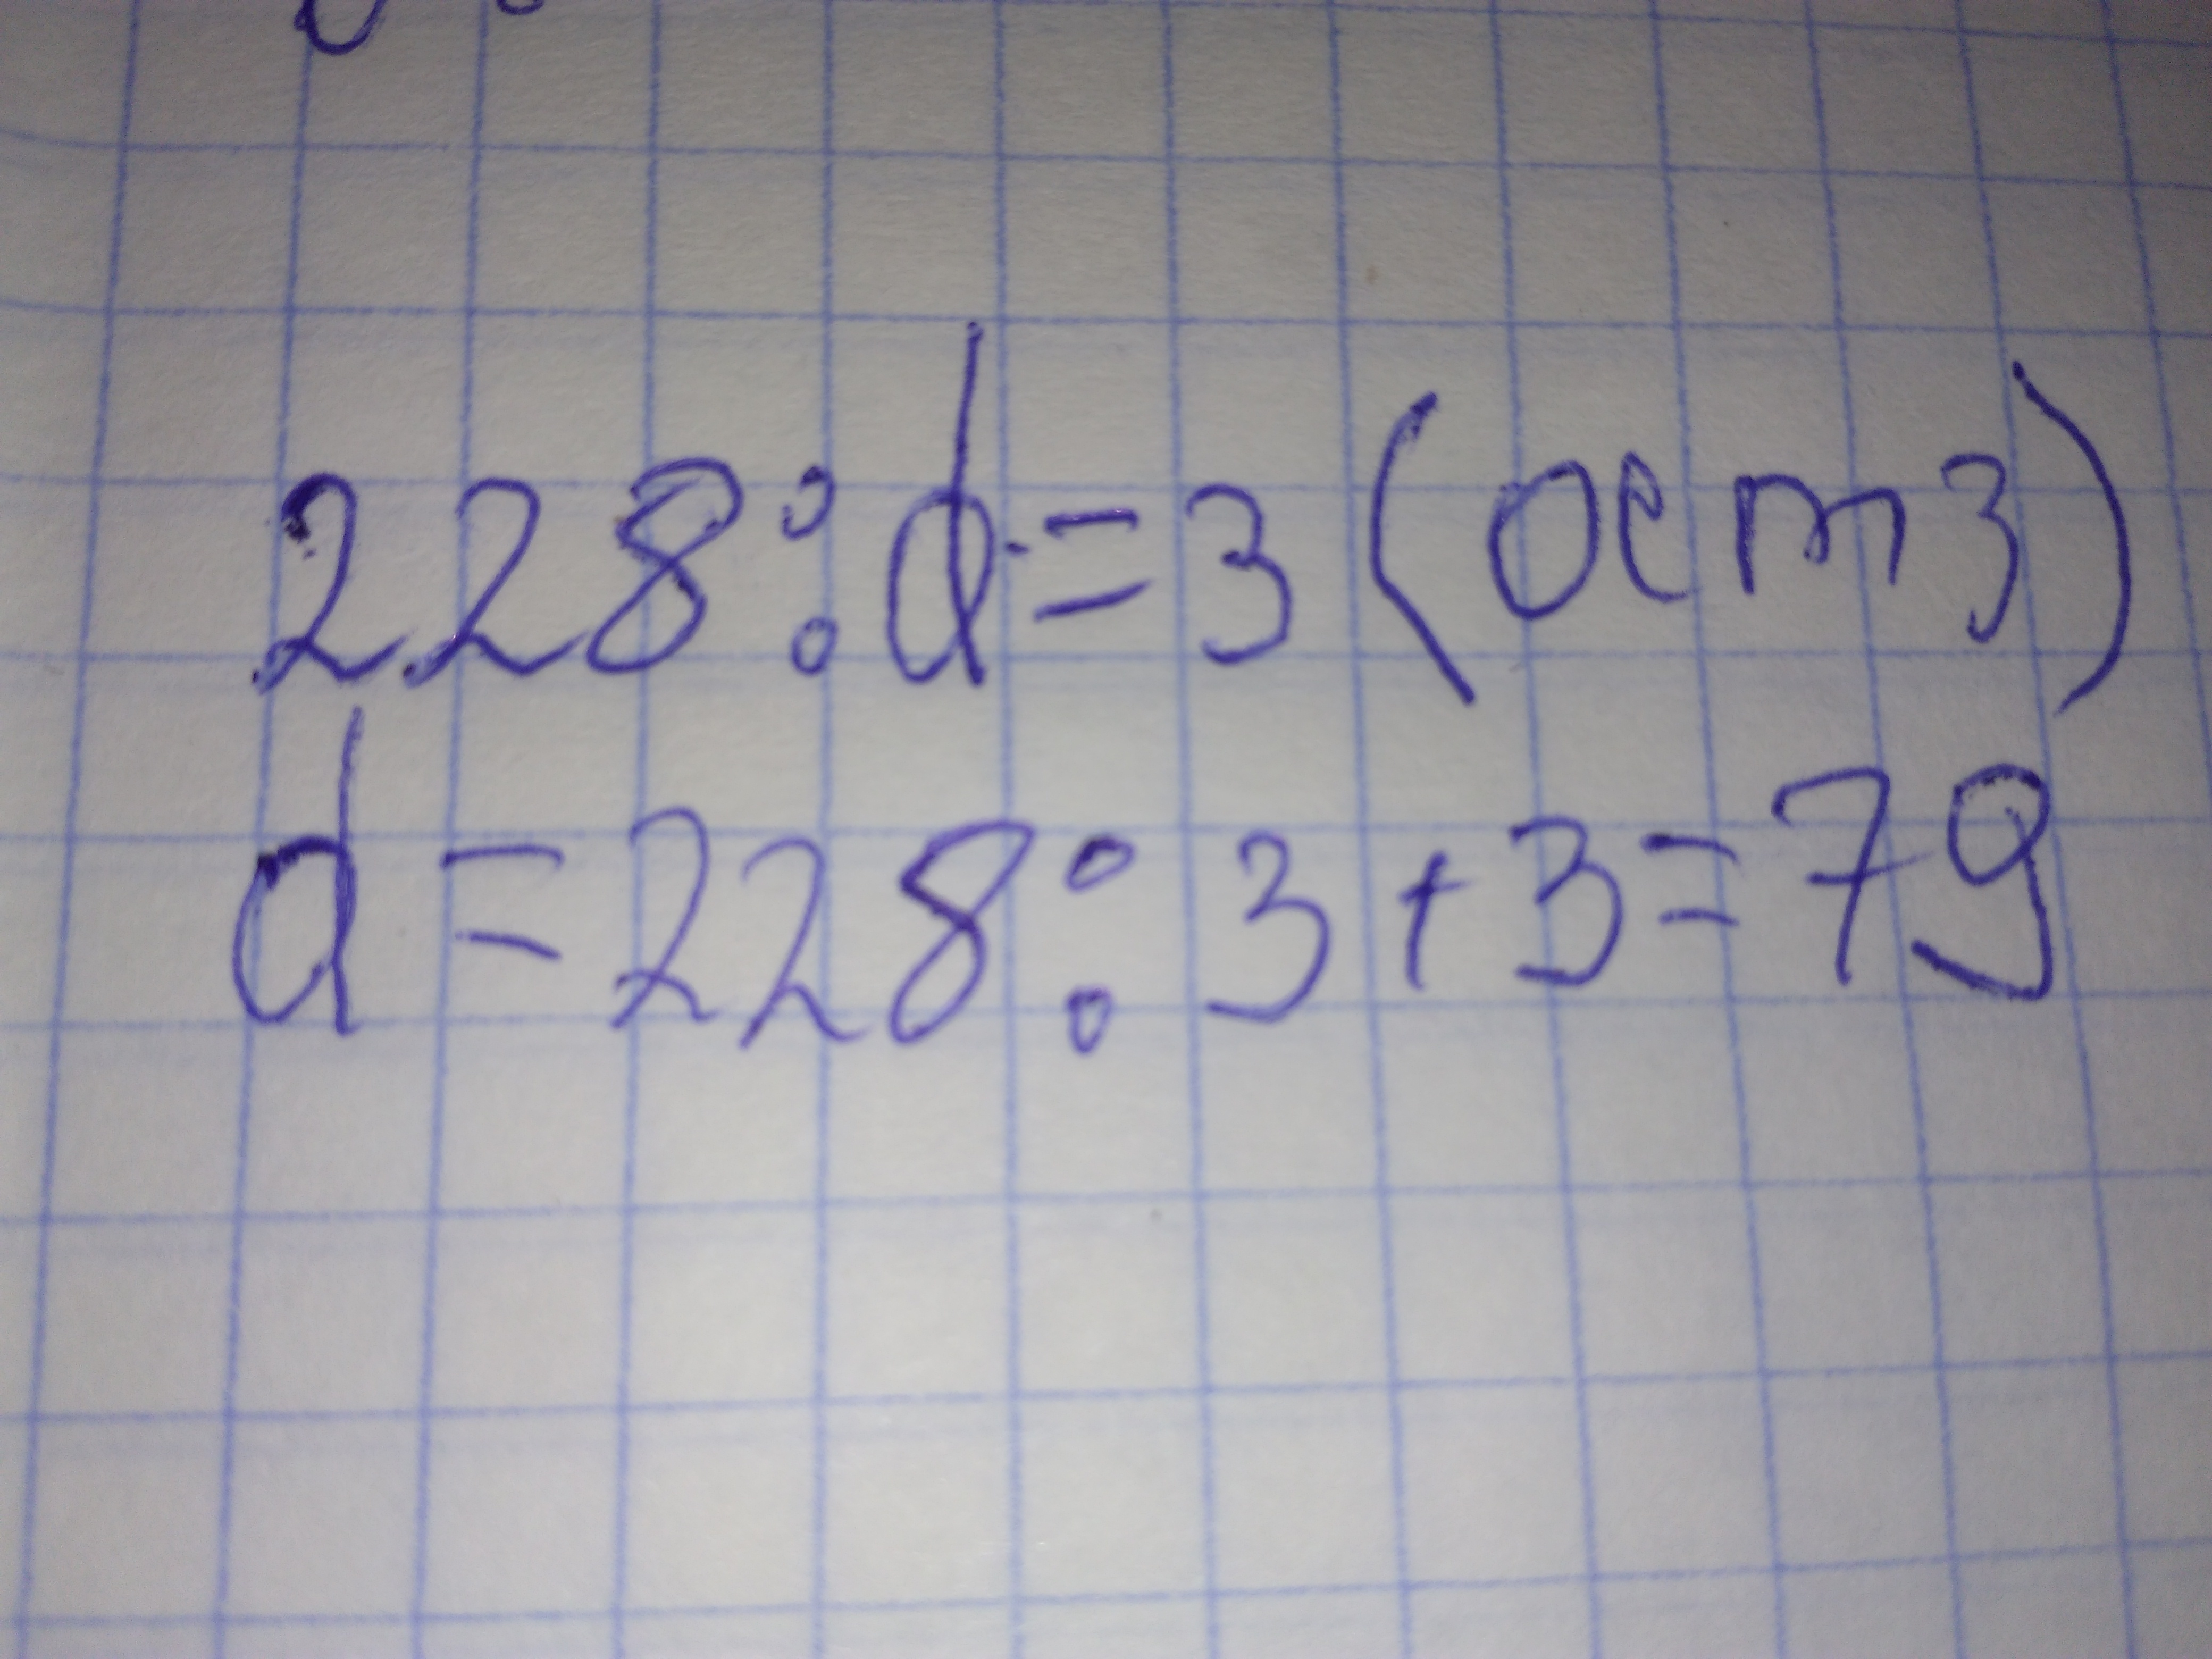 228:d=3(ост3)
d=228:3+3=79